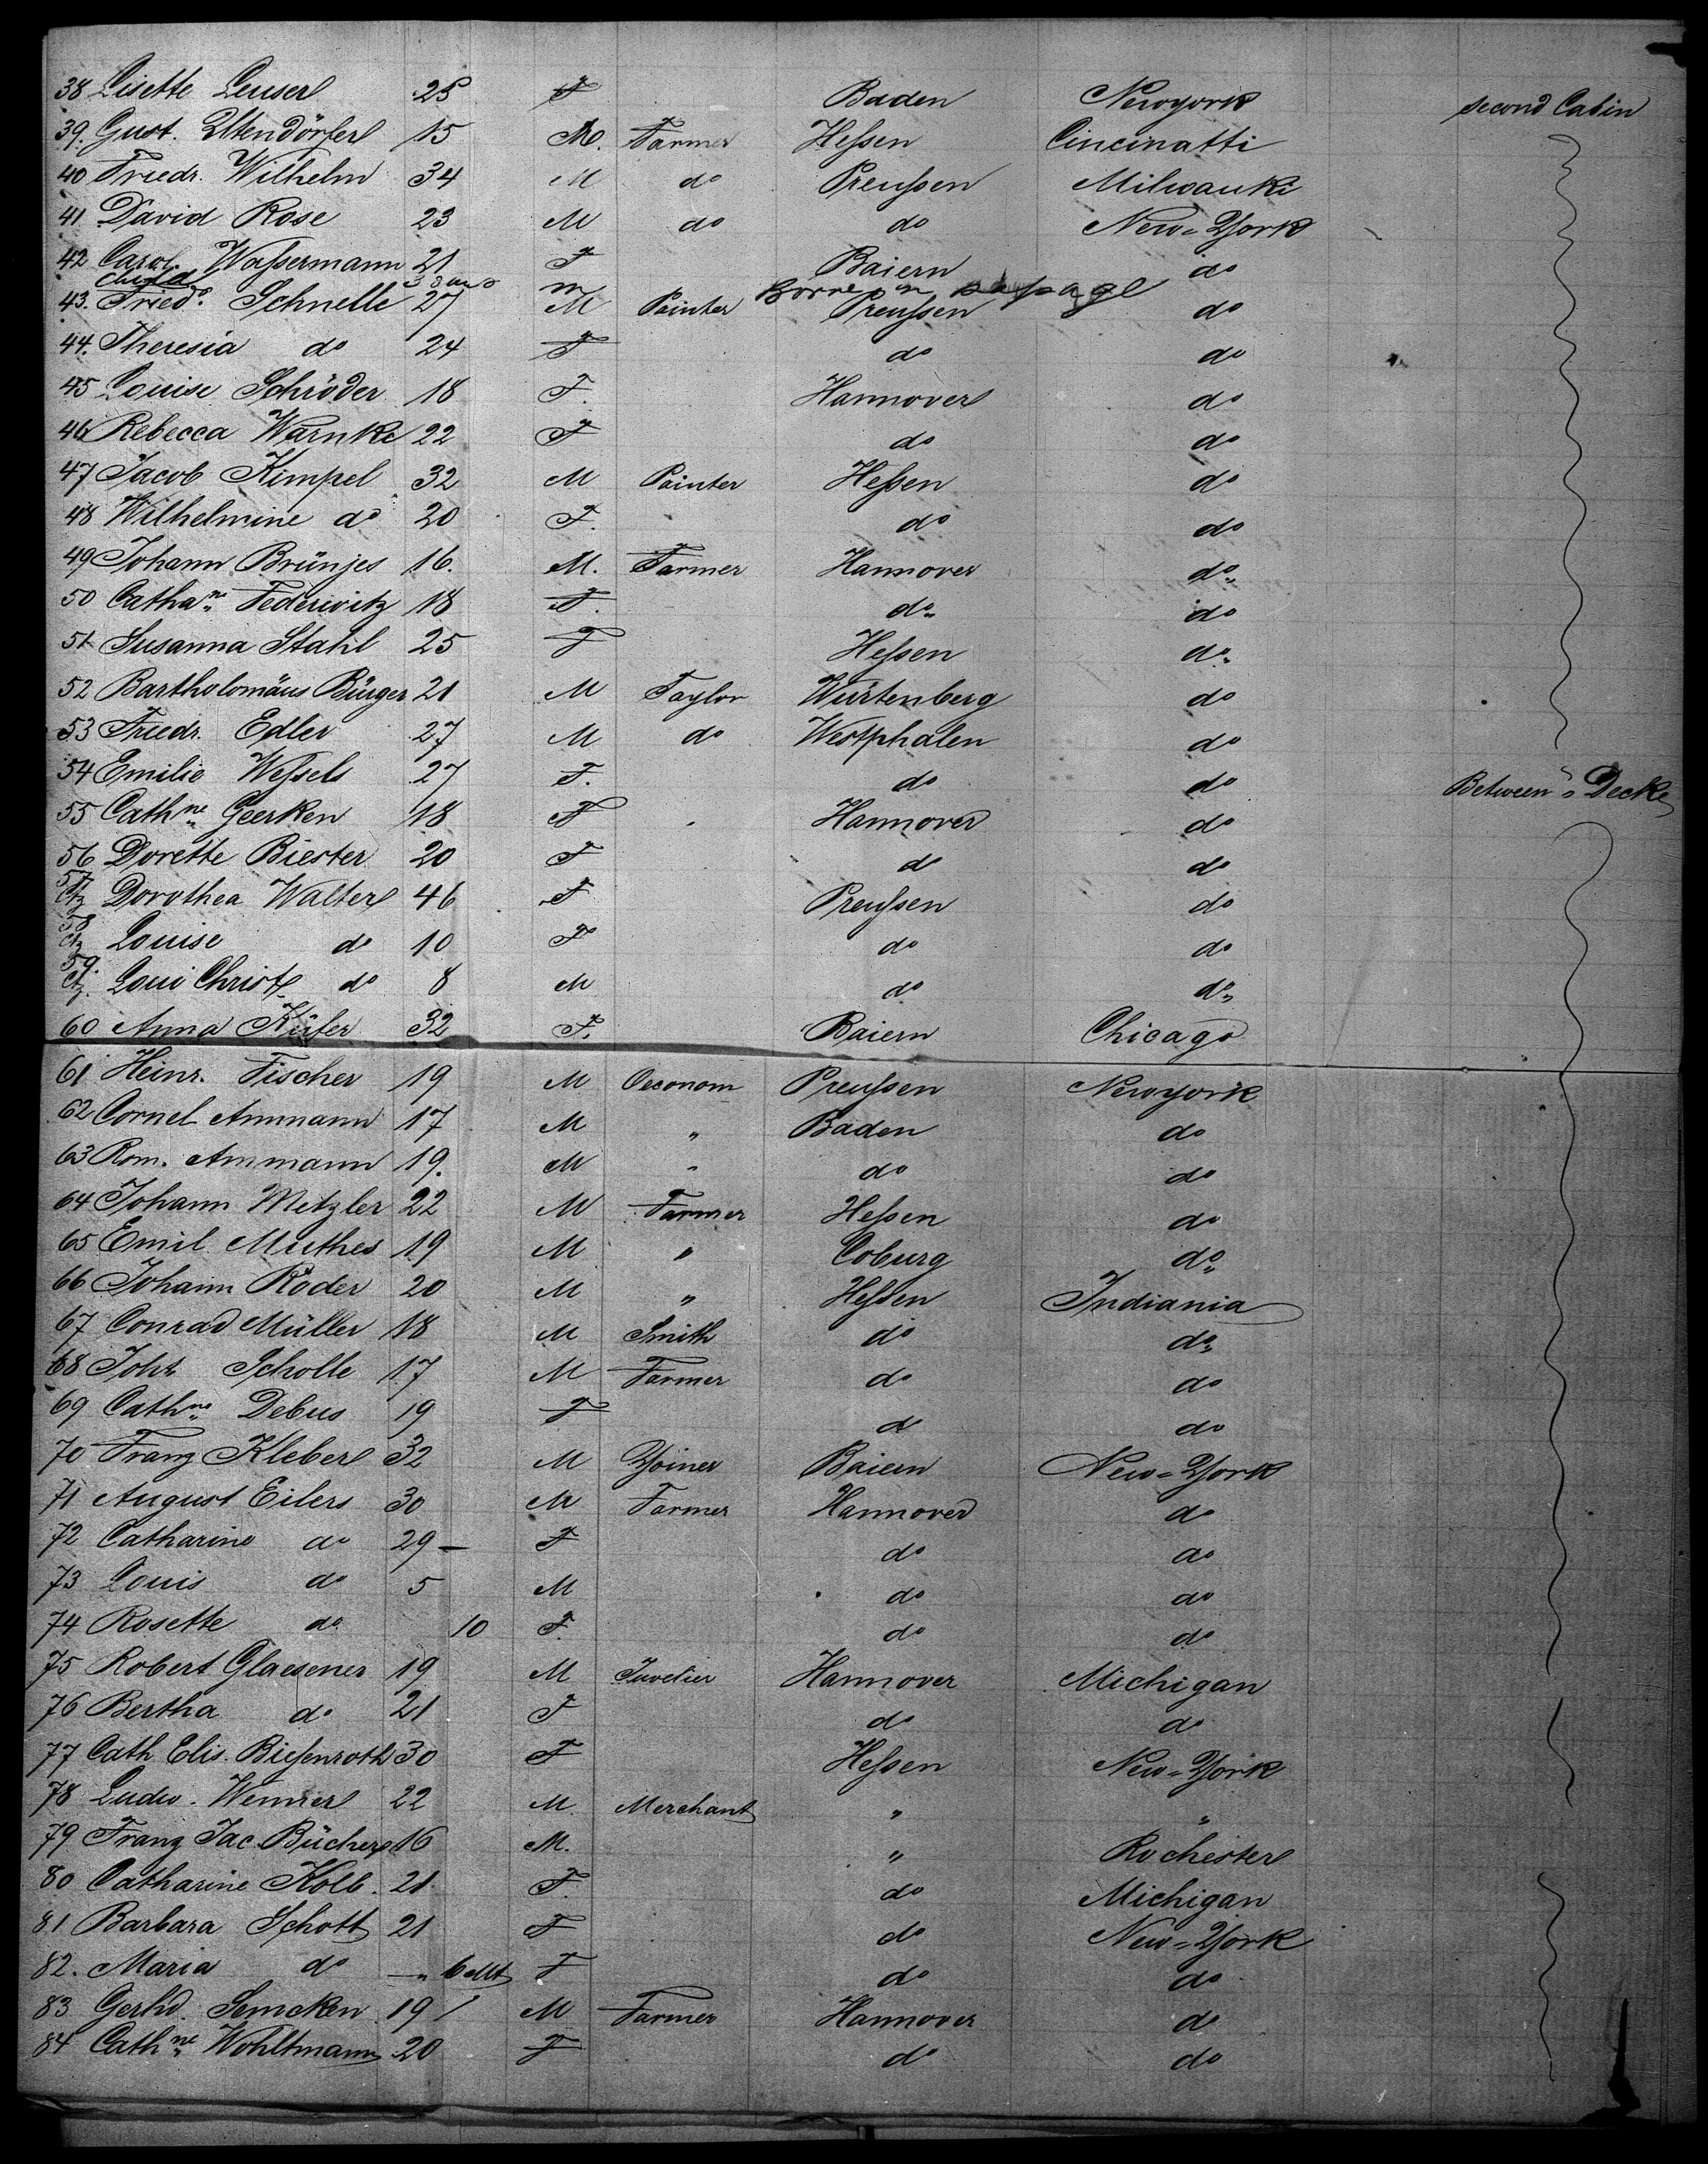 38 Lisette Leuser 25 F Baden Newyork second Cabin
39. Gust. Eltendörfer 15 M. Farmer Heſsen Cincinatti
40 Friedr. Wilhelm 34 M do Preuſsen Milwauki
41 David Rose 23 M do do New-York
42 Carol. Waſsermann 21 F Baiern do
Child 3 days m Borne on paſsage
43. Fried. Schnelle 27 M Painter Preuſsen do
44. Theresia do 24 F do do
45 Louise Schröder 18 F. Hannover do
46 Rebecca Warnke 22 F do do
47 Jacob Kimpel 32 M Painter Heſsen do
48 Wilhelmine do 20 F. do do
49 Johann Brünjes 16. M. Farmer Hannover do
50 Cathane Federwitz 18 F. do do
51 Susanna Stahl 25 F Heſsen do
52 Bartholomäus Bürger 21 M Taylor Würtenberg do
53 Friedr. Edler 27 M do Westphalen do
54 Emilie Weſsels 27 F. do do Between Decke
55 Cathne Geerken 18 F Hannover do
56 Dorette Biester 20 F do do
57 Ctz Dorothea Walter 46 F Preuſsen do
58 Ctz Louise do 10 F do do
59. Ctz. Loui Christ do 8 M do do
60 Anna Küfer 32 F. Baiern Chicago
61 Heinr. Fischer 19 M Oeconom Preuſsen Newyork
62 Cornel Ammann 17 M " Baden do
63 Rom. Ammann 19. M " do do
64 Johann Metzler 22 M Farmer Heſsen do
65 Emil Muthes 19 M " Coburg do
66 Johann Röder 20 M " Heſsen Indiania
67 Conrad Müller 18 M Smith do do
68 Joh Scholle 17 M Farmer do do
69 Cathne Debus 19 F do do
70 Franz Kleber 32 M Yoiner Baiern New-York
71 August Eilers 30 M Farmer Hannover do
72 Catharine do 29 — F do do
73 Louis do 5 M do do
74 Rosette do 10 F. do do
75 Robert Glaesener 19 M Juvelier Hannover Michigan
76 Bertha do 21 F do do
77 Cath Elis. Bieſenroth 30 F Heſsen New-York
78 Ludw. Wenner 22 M. Merchant " "
79 Franz Jac. Bücher 16 M. " Rochester
80 Catharine Kolb. 21 F. do Michigan
81 Barbara Schott 21 F do New-York
82. Maria do — " 6 Mt F do do
83 Gerhd. Semcken 19 M Farmer Hannover do
84 Cathne Wohltmann 20 F do do